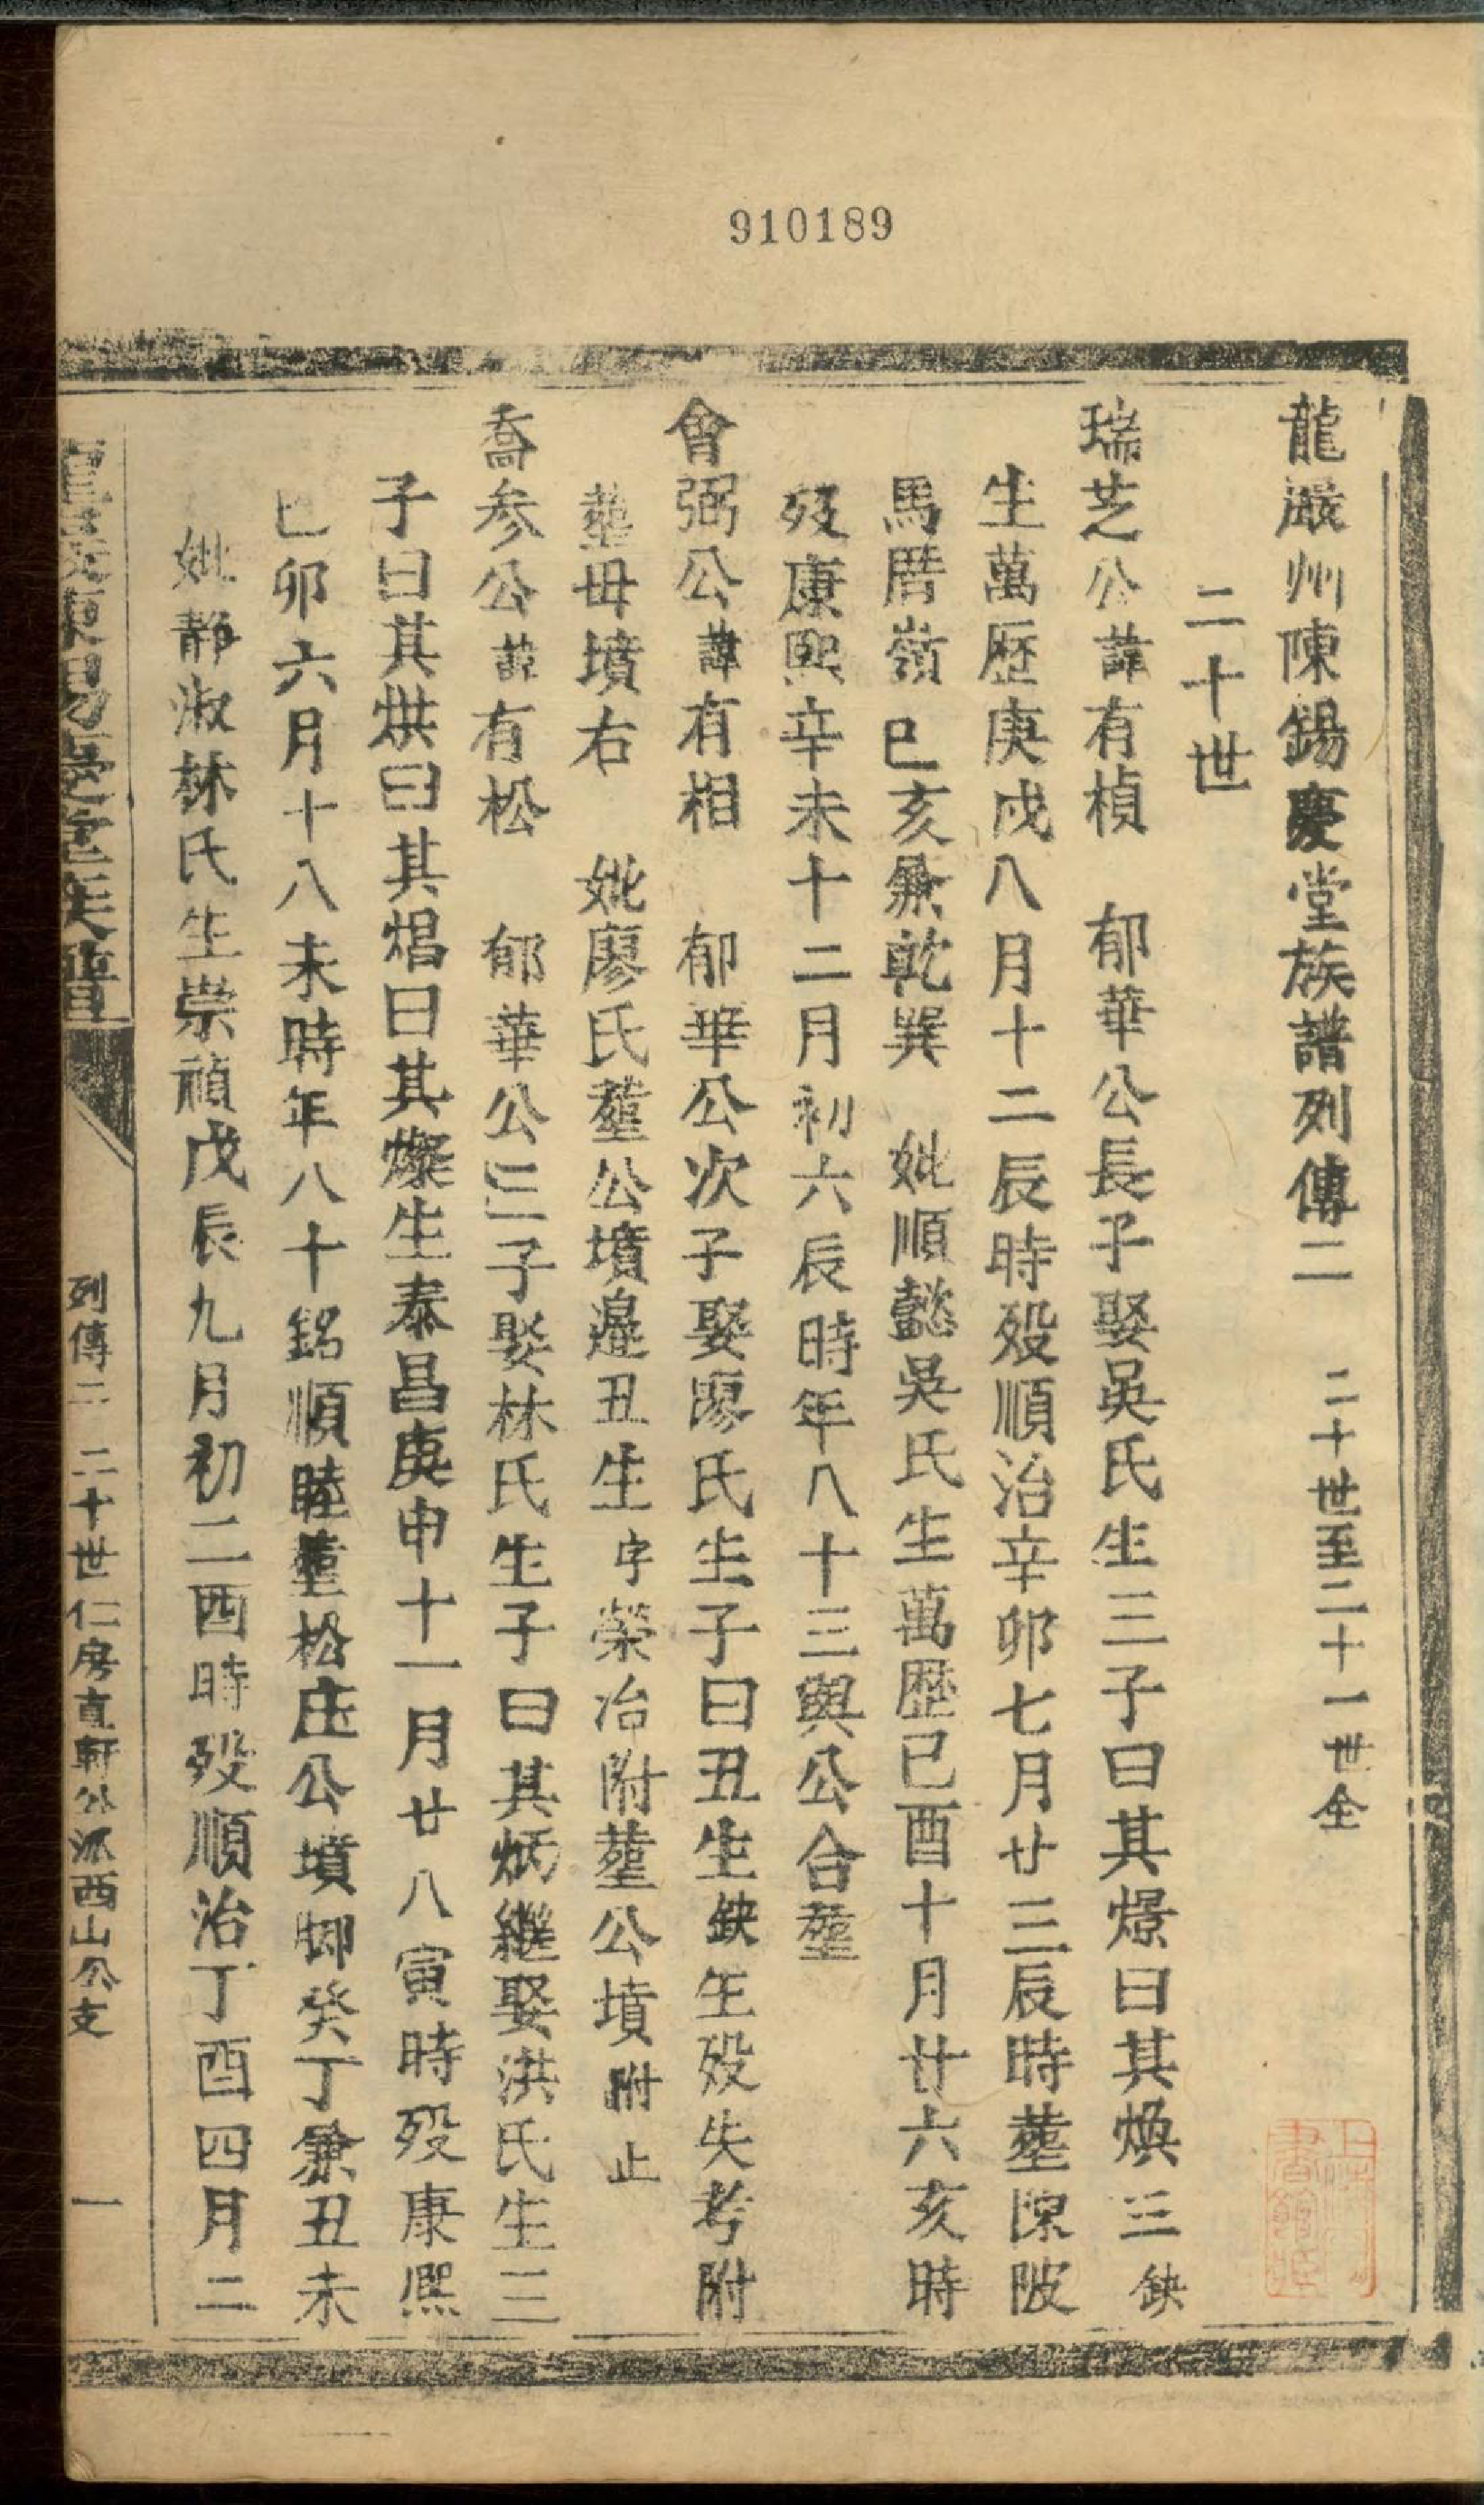 910189
龍巖州陳錫慶堂族譜列傳二 二十世至二十一世全
二十世
瑞芝公諱有楨 郁華公長子娶吳氏生三子曰其燝曰其煥三缺
生萬歷庚戌八月十二辰時殁順治辛卯七月廿三辰時塟陳陂
馬厝嶺巳亥兼乾巽 妣順懿吳氏生萬歷己酉十月廿六亥時
殁康熙辛未十二月初六辰時年八十三與公合塟
曾弼公諱有相 郁華公次子娶廖氏生子曰丑生缺生殁失考附
塟毋墳右 妣廖氏塟公墳邉丑生字榮冶附塟公墳附止
喬參公諱有松 郁華公三子娶林氏生子曰其炳繼娶洪氏生三
子曰其烘曰其焻曰其燦生泰昌庚申十一月廿八寅時殁康熙
己卯六月十八未時年八十銘順睦塟松庄公墳脚癸丁兼丑未
妣靜淑林氏生崇禎戊辰九月初二酉時殁順治丁酉四月二
列傳二 二十世仁房直軒公派西山公支 一